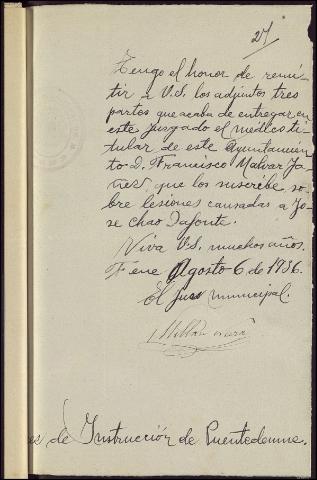 27
Tengo el honor de remi-
tir a V.S. los adjuntos tres
partes que acaba de entregar en
este juzgado el medico ti-
tular de este Ayuntamien-
to D. Francisco Malvar Ja-
ñez, que los suscribe so-
bre lesiones causadas a Jo-
se Chao Dafonte.
Viva V.S. muchos años.
Fene Agosto 6 de 1936.
El Juez municipal.
Millan
de Instrucción de Puentedeume.